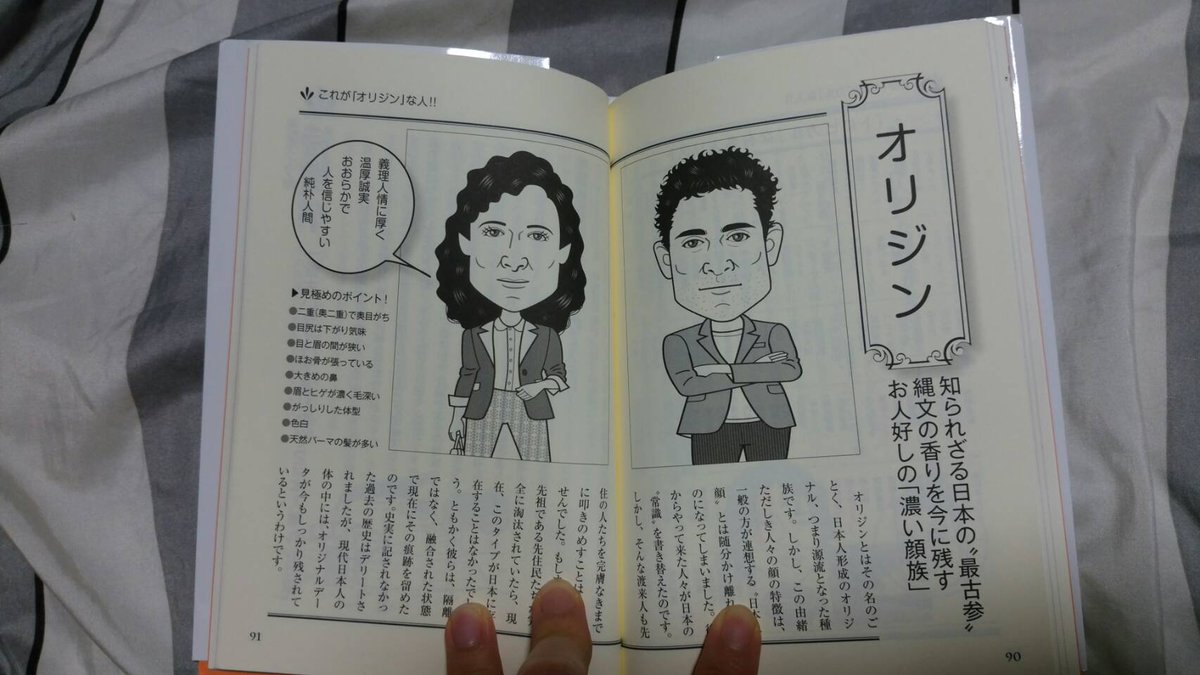 オリジン
知られざる日本の〝最古参〟
縄文の香りを今に残す
お人好しの「濃い顔族」
オリジンとはその名のご
とく、日本人形成のオリジ
ナル、つまり源流となった種
族です。しかし、この由緒
ただしき人々の顔の特徴は、
一般の方が連想する〝日本
顔〟とは随分かけ離れ
のになってしまいました。
からやって来た人々が日本の
〝常識〟を書き替えたのです。
しかし、そんな渡来人も先
90
これが「オリジン」な人!!
義理人情に厚く
温厚誠実
おおらかで
人を信じやすい
純朴人間
▶見極めのポイント!
●二重(奥二重)で奥目がち
●目尻は下がり気味
●目と眉の間が狭い
●ほお骨が張っている
●大きめの鼻
●眉とヒゲが濃く毛深い
●がっしりした体型
●色白
●天然パーマの髪が多い
住の人たちを完膚なきまで
に叩きのめすことは
せんでした。もし
先祖である先住民た
全に淘汰されていたら、現
在、このタイプが日本に
在することはなかったで
う。ともかく彼らは、隔離
ではなく、融合された状態
で現在にその痕跡を留めた
のです。史実に記されなかっ
た過去の歴史はデリートさ
れましたが、現代日本人の
体の中には、オリジナルデー
タが今もしっかり残されて
いるというわけです。
91